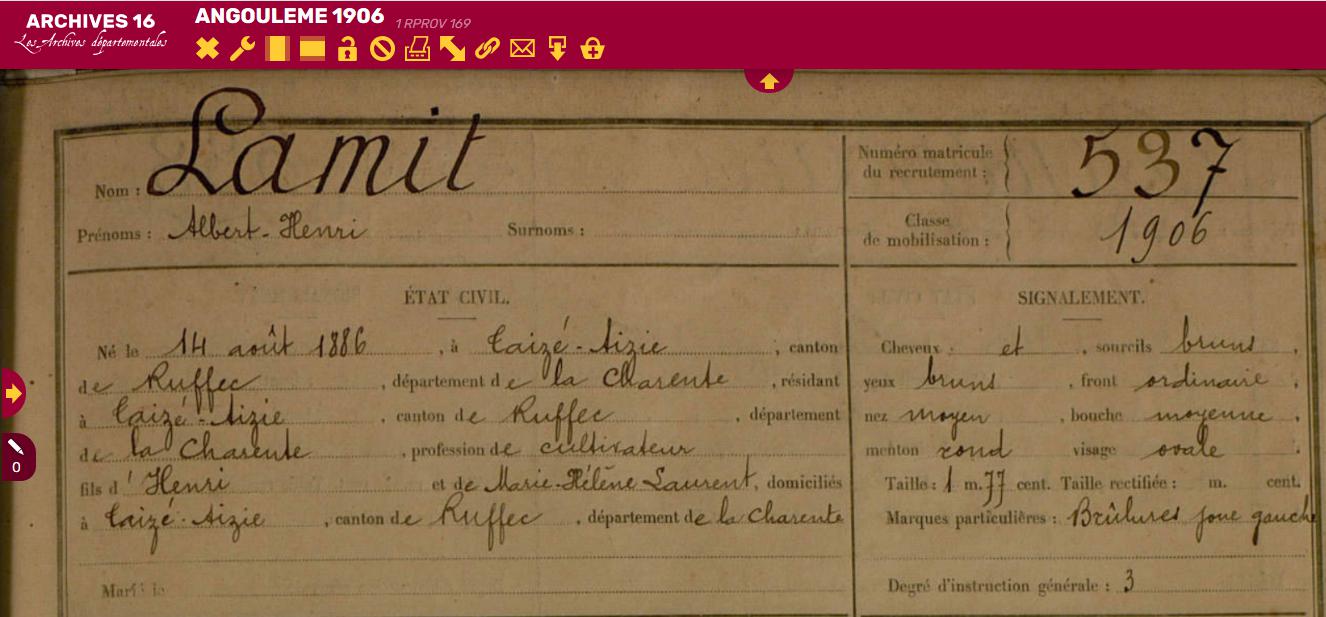 ARCHIVES 16
Les Archives départementales
ANGOULEME 1906 1 RPROV 169
Nom : Lamit
Prénoms : Albert-Henri Surnoms :
Numéro matricule du recrutement : 537
Classe de mobilisation : 1906
ÉTAT CIVIL.
Né le 14 août 1886, à Taizé-Aizie, canton
de Ruffec, département de la Charente, résidant
à Taizé-Aizie, canton de Ruffec, département
de la Charente, profession de cultivateur
fils d'Henri et de Marie-Hélène Laurent, domiciliés
à Taizé-Aizie, canton de Ruffec, département de la Charente
Marié le
SIGNALEMENT.
Cheveux et, sourcils bruns,
yeux bruns, front ordinaire,
nez moyen, bouche moyenne,
menton rond visage ovale.
Taille : 1 m. 77 cent. Taille rectifiée : m. cent.
Marques particulières : Brûlures joue gauche
Degré d'instruction générale : 3
0